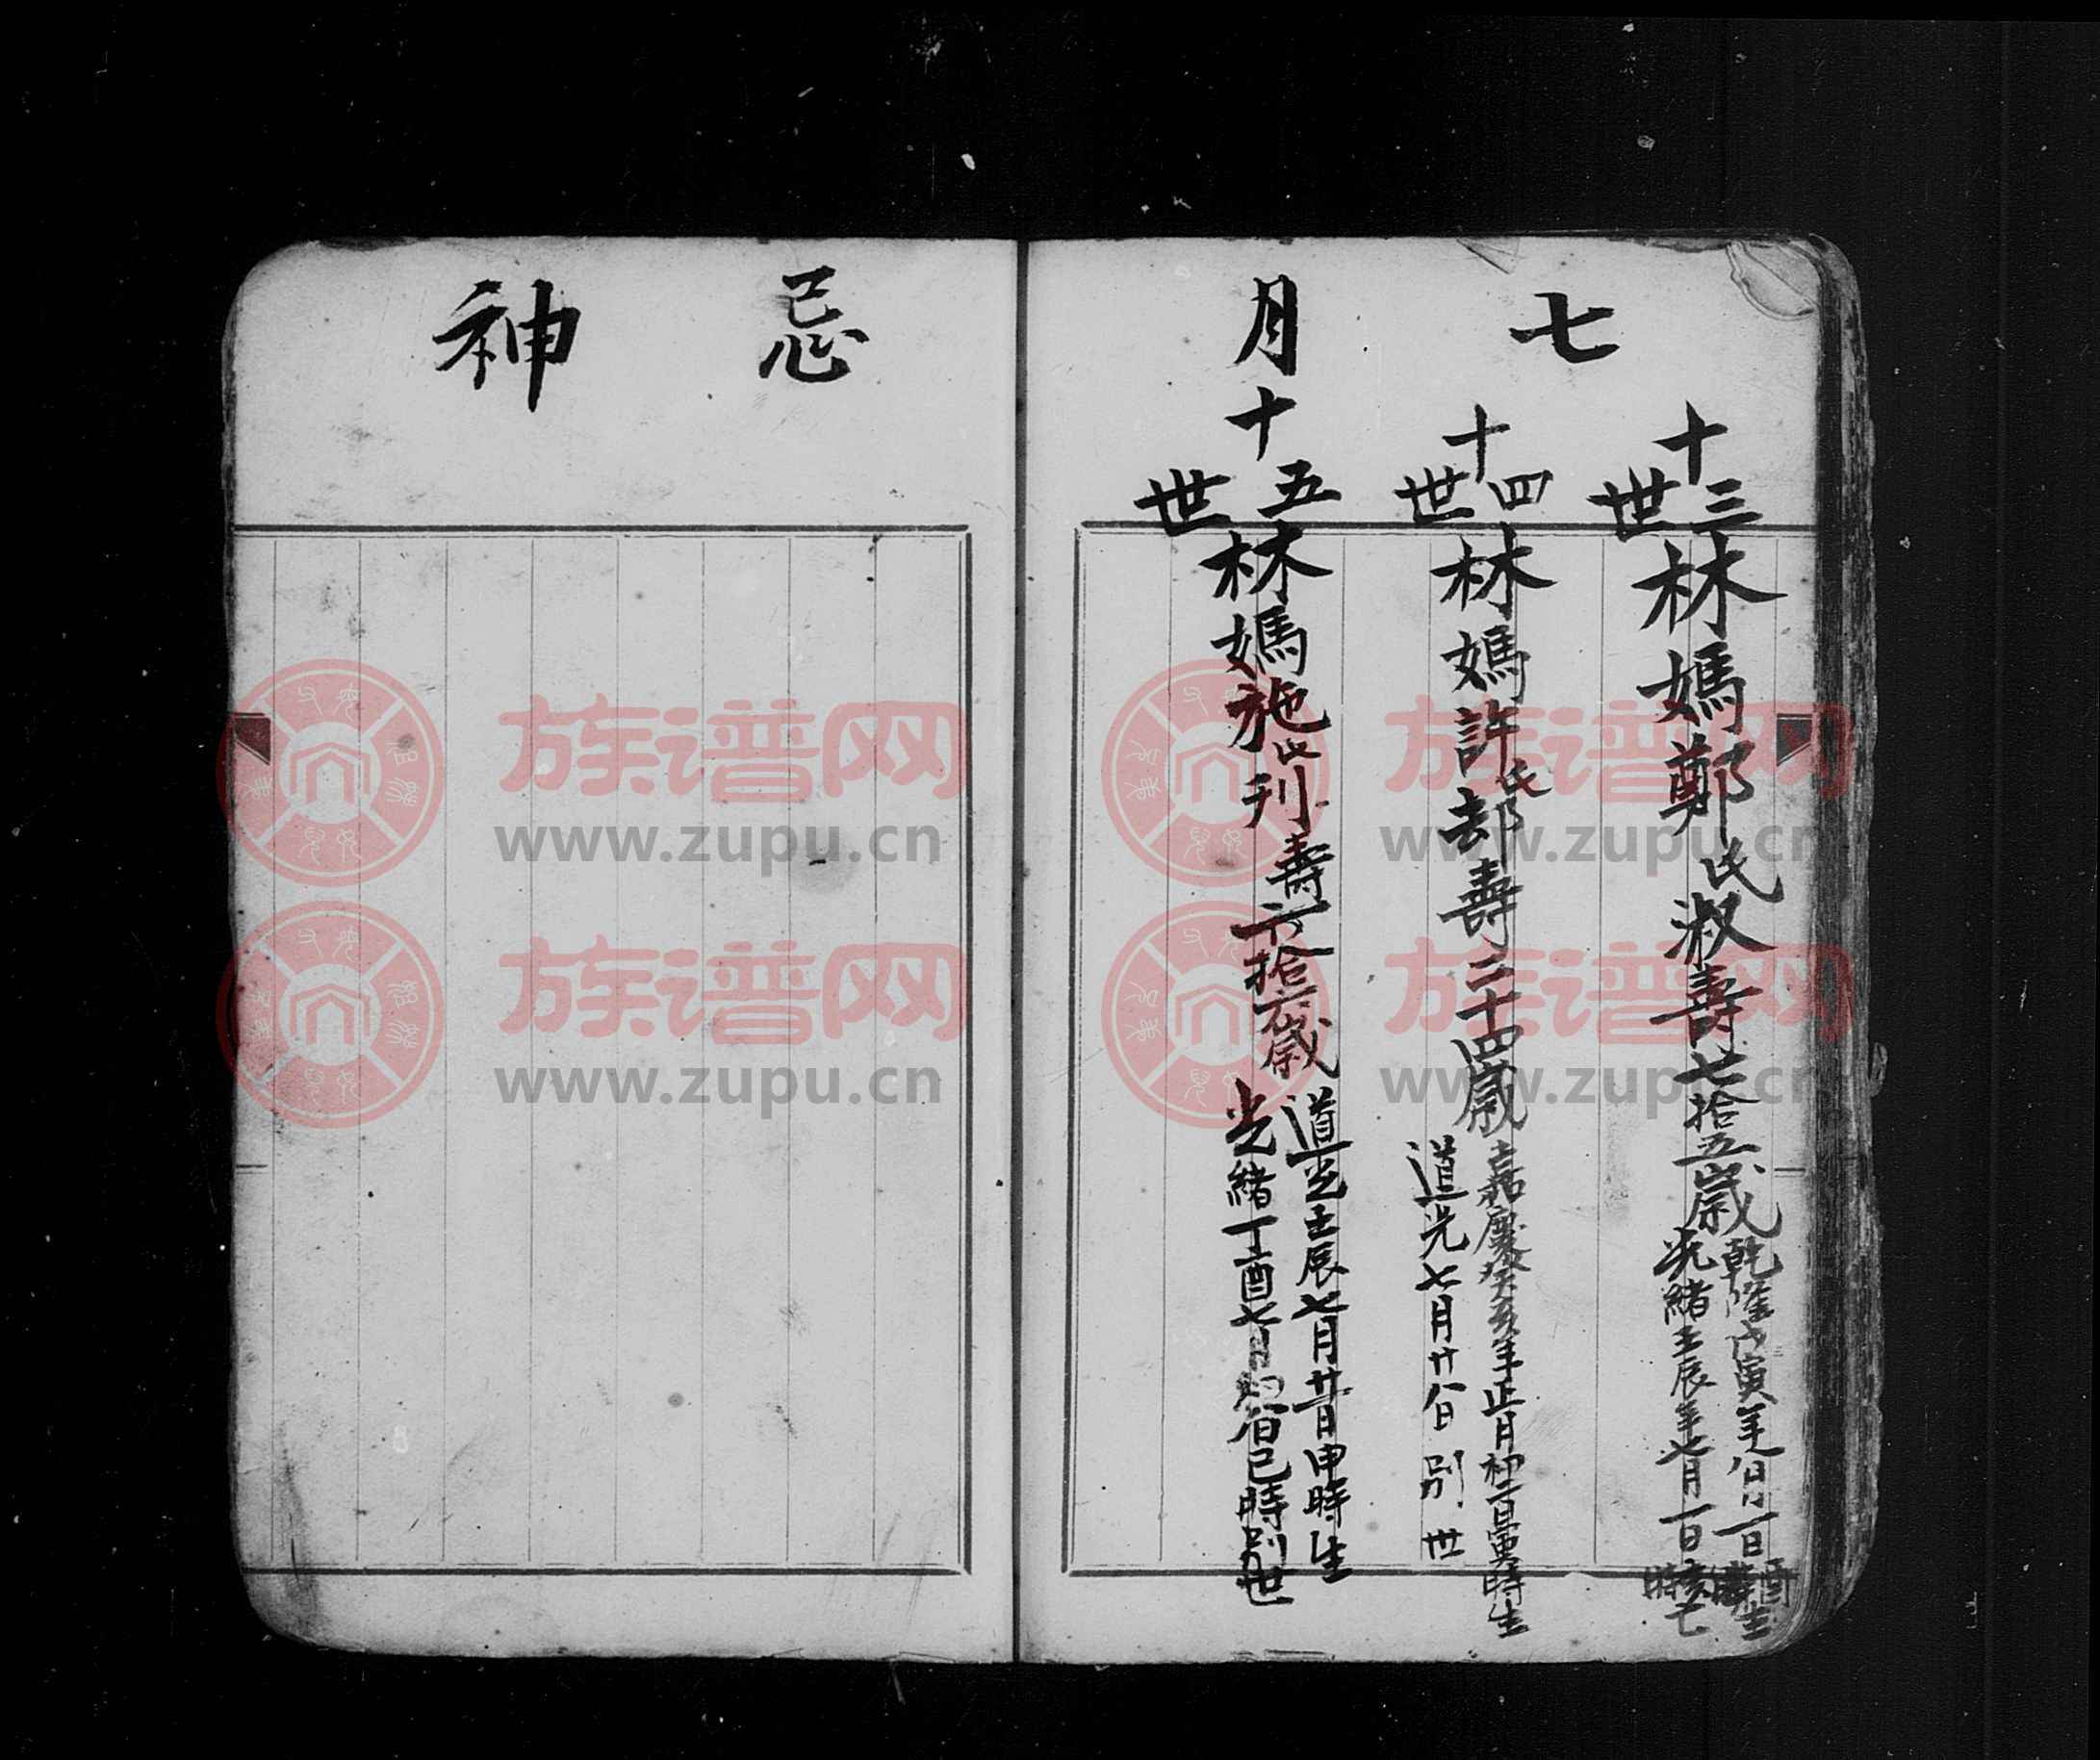 七月忌神
十三世
林媽鄭氏淑壽七拾五歲
乾隆戊寅年八月一日酉時生
光緒壬辰年七月一日亥時亡
十四世
林媽許氏却壽二十四歲
嘉慶癸亥年正月初一日寅時生
道光七月廿八日別世
十五世
林媽施氏刊壽六拾六歲
道光壬辰七月廿日申時生
光緒丁酉七月日巳時別世
族谱网
www.zupu.cn
族谱网
www.zupu.cn
族谱网
www.zupu.cn
族谱网
www.zupu.cn